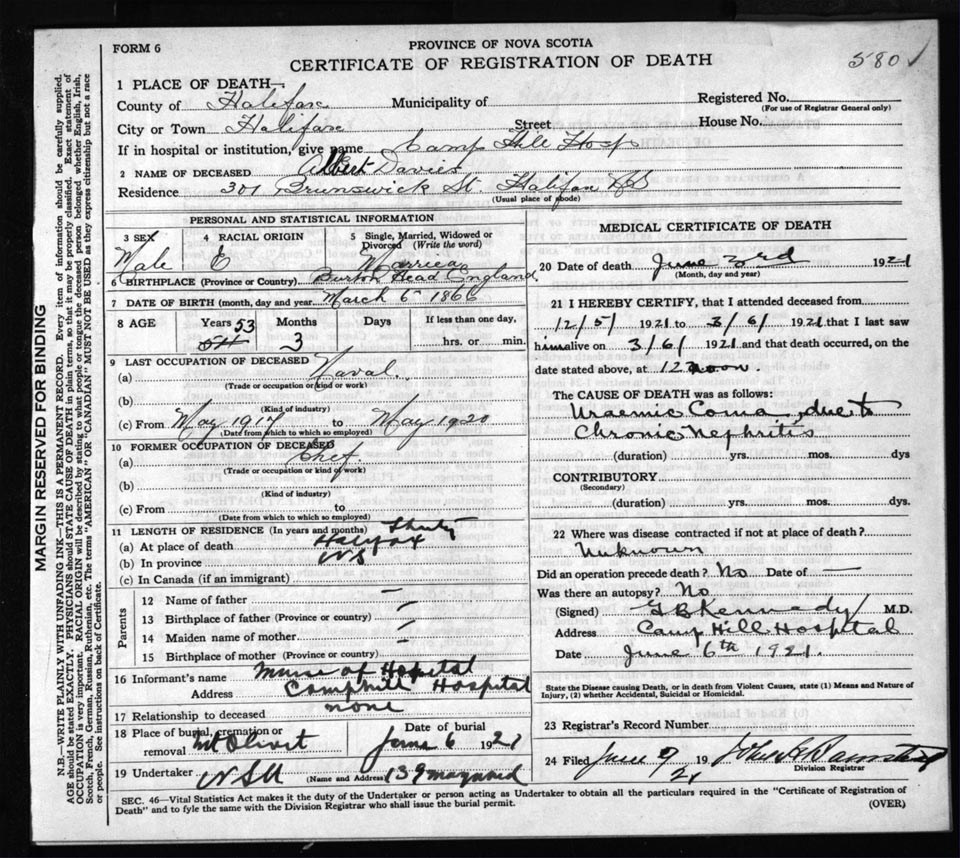 FORM 6
PROVINCE OF NOVA SCOTIA
CERTIFICATE OF REGISTRATION OF DEATH
580
1 PLACE OF DEATH—
County of Halifax Municipality of Registered No.
(For use of Registrar General only)
City or Town Halifax Street House No.
If in hospital or institution, give name Camp Hill Hosp
2 NAME OF DECEASED Albert Davies
Residence 301 Brunswick St. Halifax NS
(Usual place of abode)
PERSONAL AND STATISTICAL INFORMATION
3 SEX 4 RACIAL ORIGIN 5 Single, Married, Widowed or Divorced (Write the word)
Male E Married
6 BIRTHPLACE (Province or Country) Head England
7 DATE OF BIRTH (month, day and year) March 6 1866
8 AGE Years 53 Months 3 Days If less than one day,
54 hrs. or min.
9 LAST OCCUPATION OF DECEASED
(a) Naval
(Trade or occupation or kind or work)
(b)
(Kind of industry)
(c) From May 1917 to May 1920
(Date from which to which so employed)
10 FORMER OCCUPATION OF DECEASED
(a) Chef
(Trade or occupation or kind of work)
(b)
(Kind of industry)
(c) From to
(Date from which to which so employed)
11 LENGTH OF RESIDENCE (In years and months)
(a) At place of death Halifax
(b) In province NS
(c) In Canada (if an immigrant)
Parents
12 Name of father —
13 Birthplace of father (Province or country) —
14 Maiden name of mother —
15 Birthplace of mother (Province or Country) —
16 Informant's name of Hospital
Address Camphill Hospital
17 Relationship to deceased none
18 Place of burial, cremation or removal Mt Olivet Date of burial June 6 1921
19 Undertaker NSU (Name and Address) 139 maynard
MEDICAL CERTIFICATE OF DEATH
20 Date of death June 3rd 1921
(Month, day and year)
21 I HEREBY CERTIFY, that I attended deceased from
12/5/ 1921 to 3/6/ 1921 that I last saw
him alive on 3/6/ 1921 and that death occurred, on the
date stated above, at 12 noon.
The CAUSE OF DEATH was as follows:
Uraemic Coma, due to
Chronic Nephritis
(duration) yrs. mos. dys
CONTRIBUTORY
(Secondary)
(duration) yrs. mos. dys.
22 Where was disease contracted if not at place of death?
Unknown
Did an operation precede death? No Date of —
Was there an autopsy? No
(Signed) G B Kennedy M.D.
Address Camp Hill Hospital
Date June 6th 1921.
State the Disease causing Death, or in death from Violent Causes, state (1) Means and Nature of
Injury, (2) whether Accidental, Suicidal or Homicidal.
23 Registrar's Record Number
24 Filed June 9 1921
Division Registrar
SEC. 46—Vital Statistics Act makes it the duty of the Undertaker or person acting as Undertaker to obtain all the particulars required in the "Certificate of Registration of
Death" and to fyle the same with the Division Registrar who shall issue the burial permit.
(OVER)
MARGIN RESERVED FOR BINDING
N.B.—WRITE PLAINLY WITH UNFADING INK—THIS IS A PERMANENT RECORD. Every item of information should be carefully supplied.
AGE should be stated EXACTLY. PHYSICIANS should STATE CAUSE OF DEATH in plain terms, so that it may be properly classified. Exact statement of
OCCUPATION is very important. RACIAL ORIGIN will be described by stating to what people or tongue the deceased person belonged whether English, Irish,
Scotch, French, German, Russian, Ruthenian, etc. The terms "AMERICAN" OR "CANADIAN" MUST NOT BE USED as they express citizenship but not a race
or people. See instructions on back of Certificate.